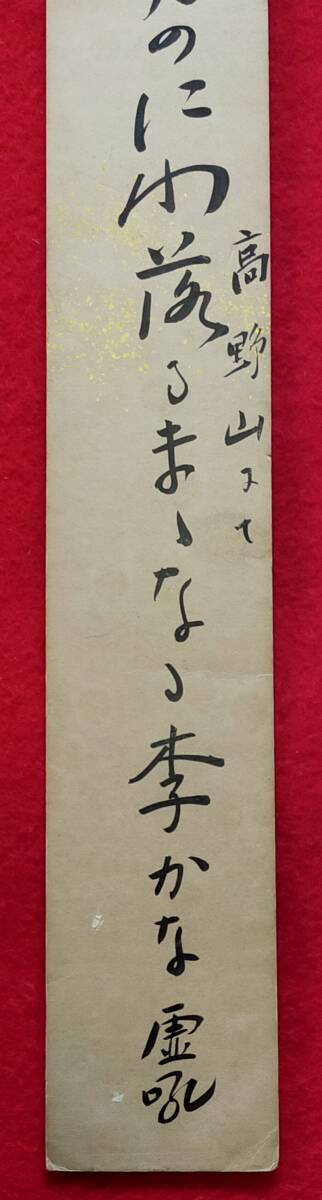 高野山にて
のにわ落るまゝなる李かな 虚吼